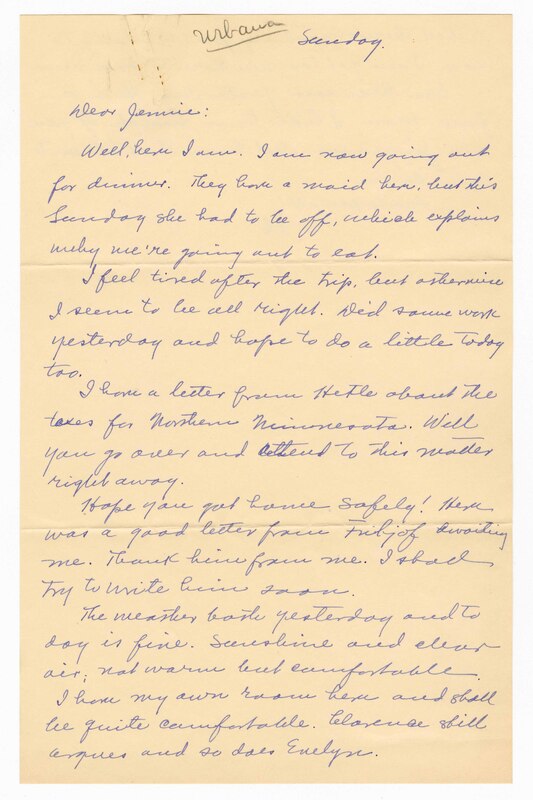 Urbana
Sunday.
Dear Jennie:
Well, here I am. I am now going out
for dinner. They have a maid here, but this
Sunday she had to be off, which explains
why we're going out to eat.
I feel tired after the trip, but otherwise
I seem to be all right. Did some work
yesterday and hope to do a little today
too.
I have a letter from Hetle about the
taxes for Northern Minnesota. Will
you go over and attend to this matter
right away.
Hope you got home safely! Here
was a good letter from Fritjof awaiting
me. Thank him from me. I shall
try to write him soon.
The weather both yesterday and to
day is fine. Sunshine and clear
air; not warm but comfortable.
I have my own room here and shall
be quite comfortable. Clarence still
argues and so does Evelyn.